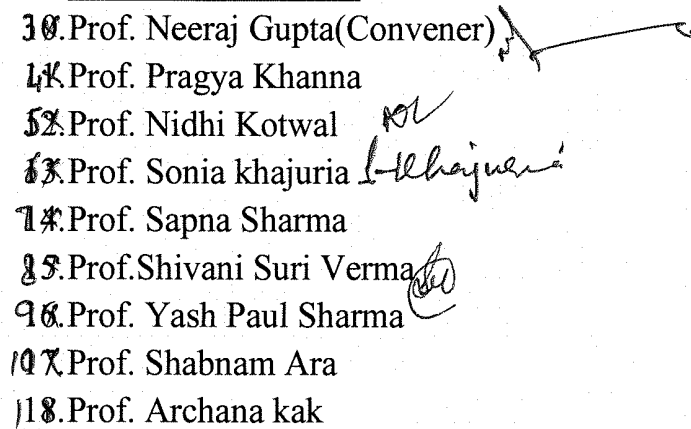 3.Prof. Neeraj Gupta(Convener)
4.Prof. Pragya Khanna
5.Prof. Nidhi Kotwal
6.Prof. Sonia khajuria S-Khajuria
7.Prof. Sapna Sharma
8.Prof.Shivani Suri Verma
9.Prof. Yash Paul Sharma
10.Prof. Shabnam Ara
11.Prof. Archana kak